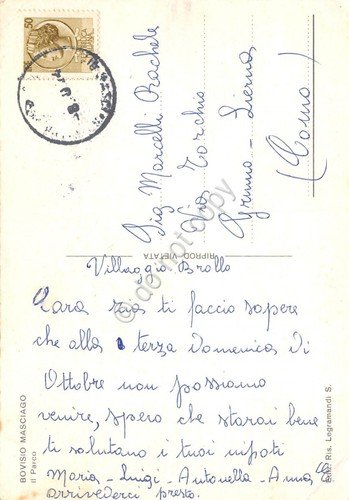 50
Sig Marcelli Rachele
Via Torchio
Grumo - Lierna
(Como)
RIPROD. VIETATA
Villaggio Brollo
Cara zia ti faccio sapere
che alla terza Domenica di
Ottobre non possiamo
venire, spero che starai bene
ti salutano i tuoi nipoti
Maria - Luigi - Antonella - Anna
arrivederci presto.
BOVISIO MASCIAGO
Il Parco
Ediz. Ris. Legramandi S.
do not copy